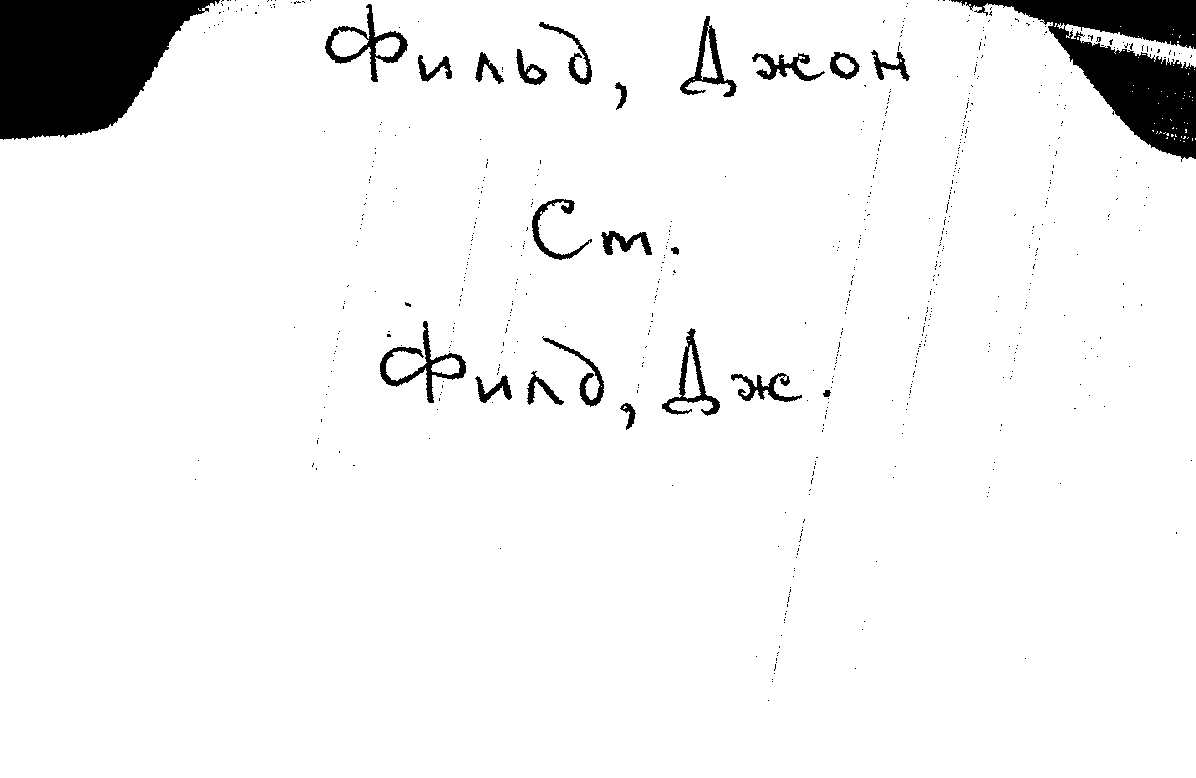 Фильд, Джон
Ст.
Филд, Дж.